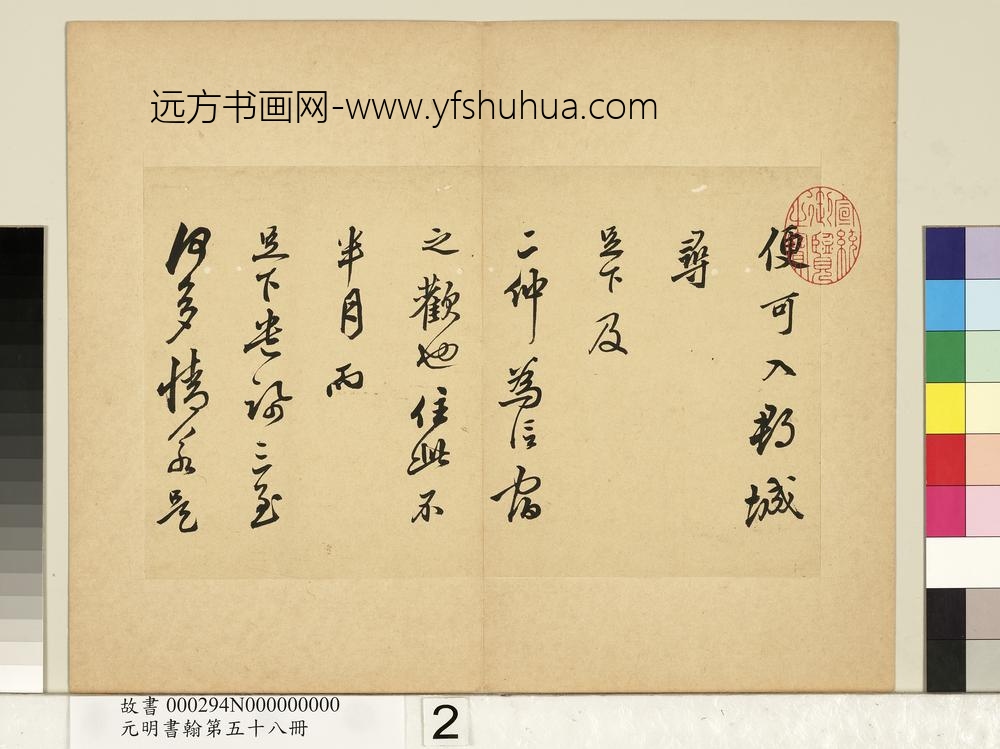 远方书画网-www.yfshuhua.com
宣統御覽之寶
便可入郡城
尋
足下及
二仲為信宿
之歡也住此不
半月而
足下三至
何多情是
故書 000294N000000000
元明書翰第五十八冊
2